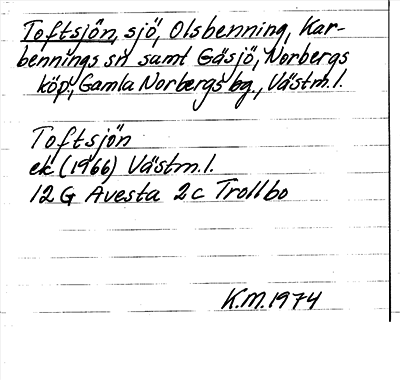 Toftsjön, sjö, Olsbenning, Kar-
bennings sn samt Gäsjö, Norbergs
köp., Gamla Norbergs bg., Västm.l.
Toftsjön
ek (1966) Västm.l.
12 G Avesta 2 c Trollbo
K.M. 1974